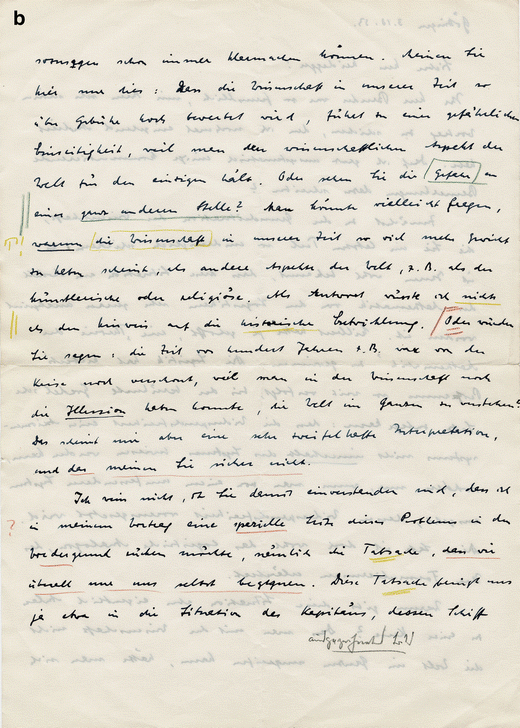 b
schon immer klarmachen können. Meinen Sie
hier nur dies: Dass die Wissenschaft in unserer Zeit so
über Gebühr hoch bewertet wird, führt zu einer gefährlichen
Einseitigkeit, weil man den wissenschaftlichen Aspekt der
Welt für den einzigen hält. Oder sehen Sie die Gefahr an
einer ganz anderen Stelle? Man könnte vielleicht fragen,
warum die Wissenschaft in unserer Zeit so viel mehr Gewicht
zu haben scheint, als andere Aspekte der Welt, z.B. als der
künstlerische oder religiöse. Als Antwort wüsste ich nichts
als den Hinweis auf die historische Entwicklung. Oder würden
Sie sagen: die Zeit vor hundert Jahren z.B. war von der
Krise noch verschont, weil man in der Wissenschaft noch
die Illusion haben konnte, die Welt im Ganzen zu verstehen?
Das scheint mir aber eine sehr zweifelhafte Interpretation,
und das meinen Sie sicher nicht.
Ich weiss nicht, ob Sie damit einverstanden sind, dass ich
? in meinem Vortrag eine spezielle Seite dieses Problems in den
Vordergrund rücken möchte, nämlich die Tatsache, dass wir
überall nur uns selbst begegnen. Diese Tatsache bringt uns
ja etwa in die Situation des Kapitäns, dessen Schiff